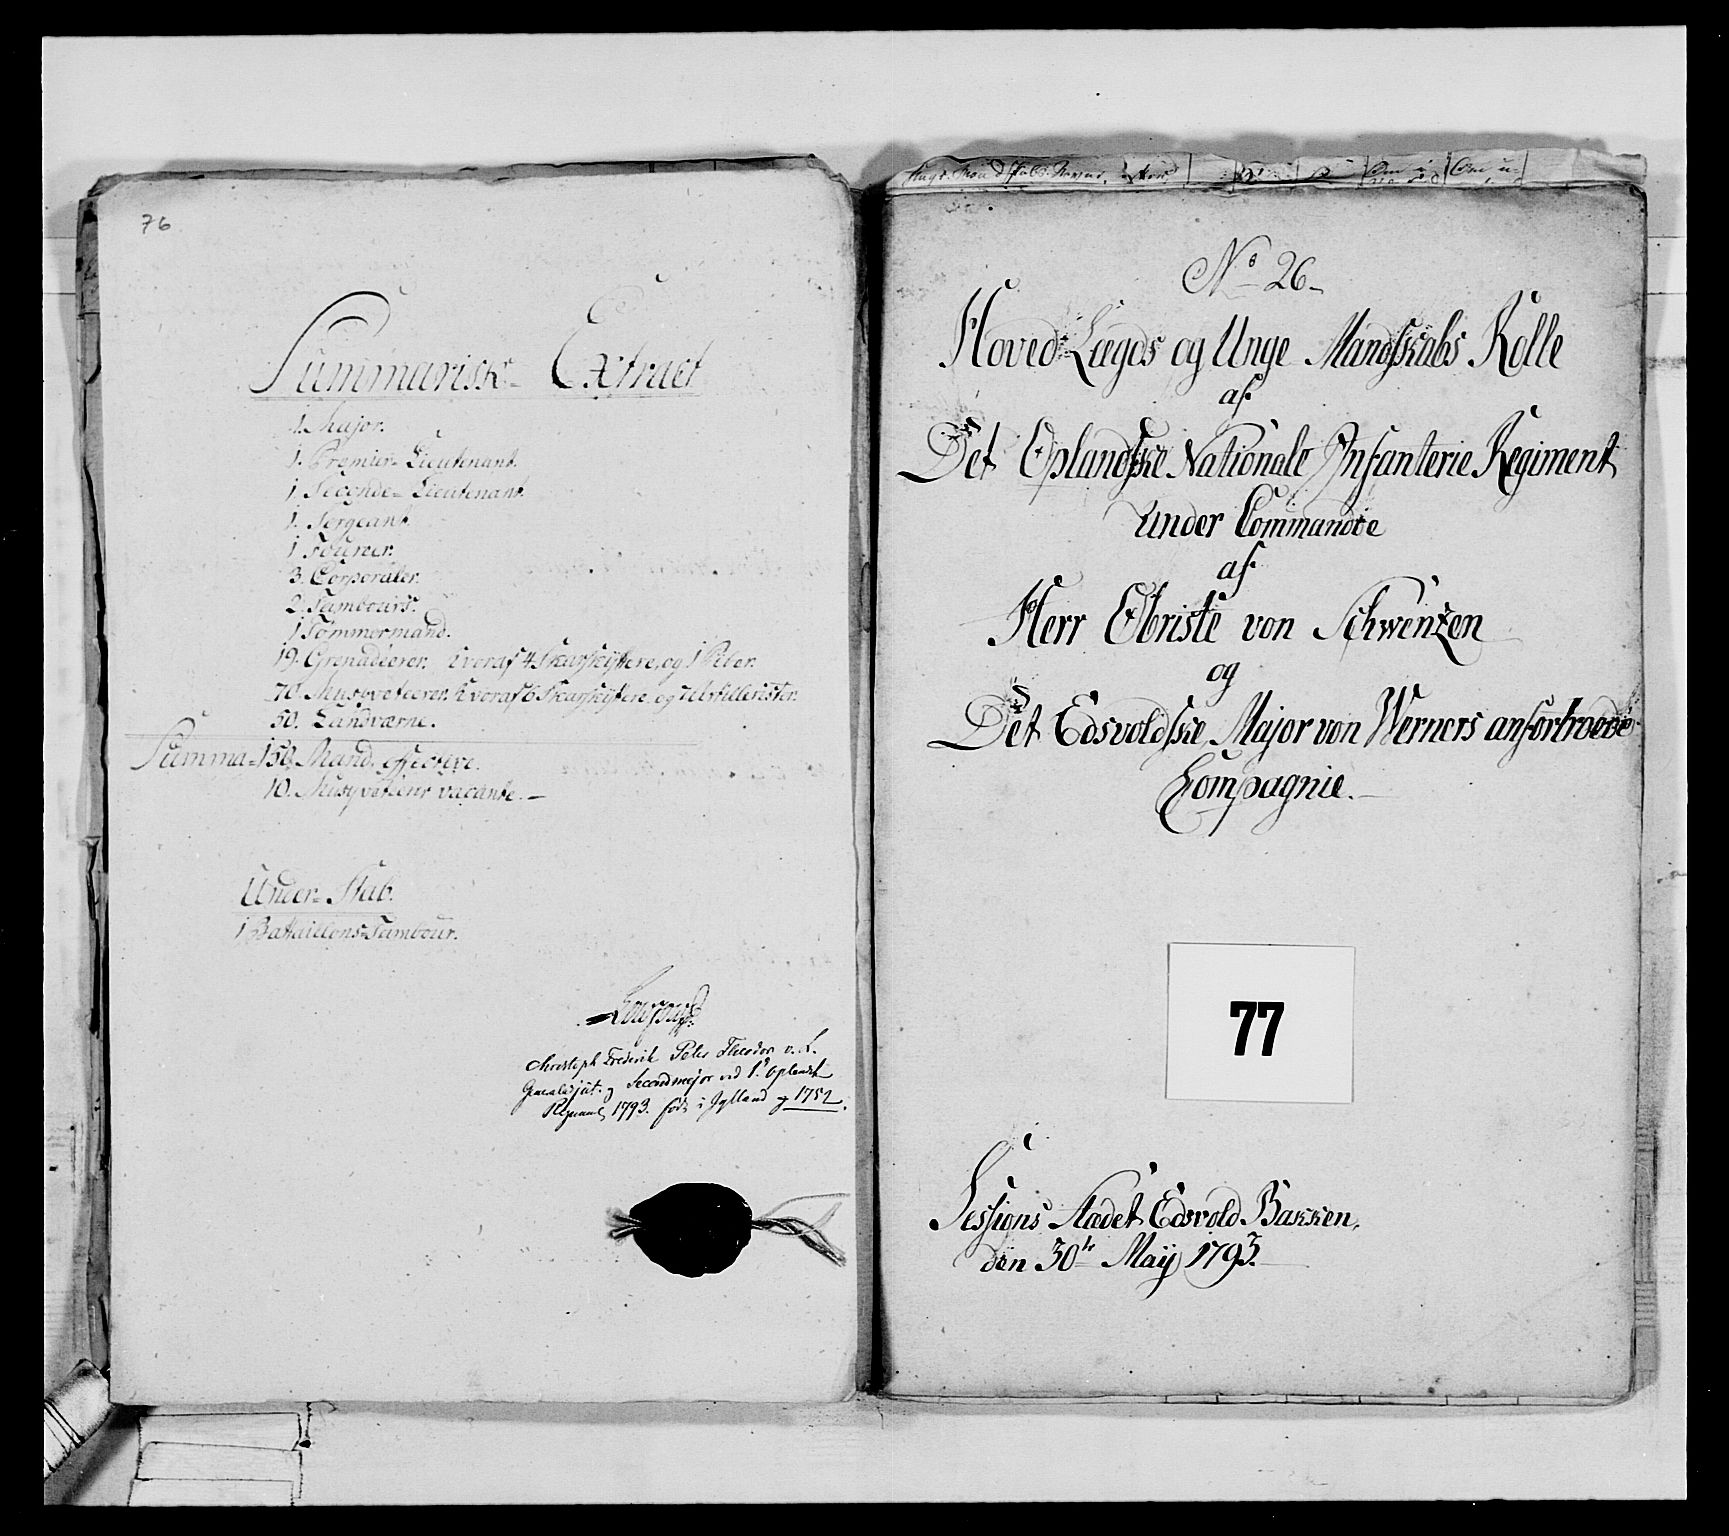 76
Summarisk Extract
1. Major.
1. Premier-Lieutenant.
1. Seconde-Lieutenant.
1. Sergeant
1 Fourer.
3. Corporaler.
2. Tambours.
1 Tømmermand.
19. Grenadeerer. hvoraf 4 Skarpskyttere, og 1 Piber.
70. Musqveteerer. hvoraf 6 Skarpskyttere og 7 Artillerister.
50. Landværne.
Summa 150 Mand. effective.
10. Musqveteerer vacante.
Under-Stab.
1 Battaillons-Tambour.
Christoph Frederik Peter Theodor v. L.
Generaladjut. og Secondmajor ved 1.ste Oplandsk
Regiment 1793. født i Jylland 1752.
No 26
Hoved-Lægds og Unge Mandskabs Rolle
af
Det Oplandske Nationale Infanterie Regiment
Under Commando
af
Herr Obriste von Schwenzen
og
Det Edsvoldske, Major von Werners anfortroede
Compagnie.
77
Sessions Stædet Edsvold Bakken,
den 30te Maij 1793.